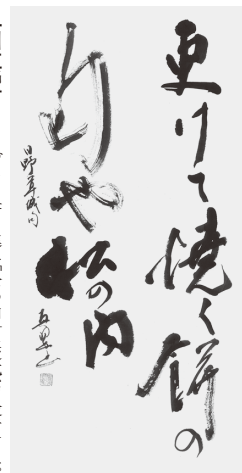 更けて焼く餅の
匂や松の内
日野草城句